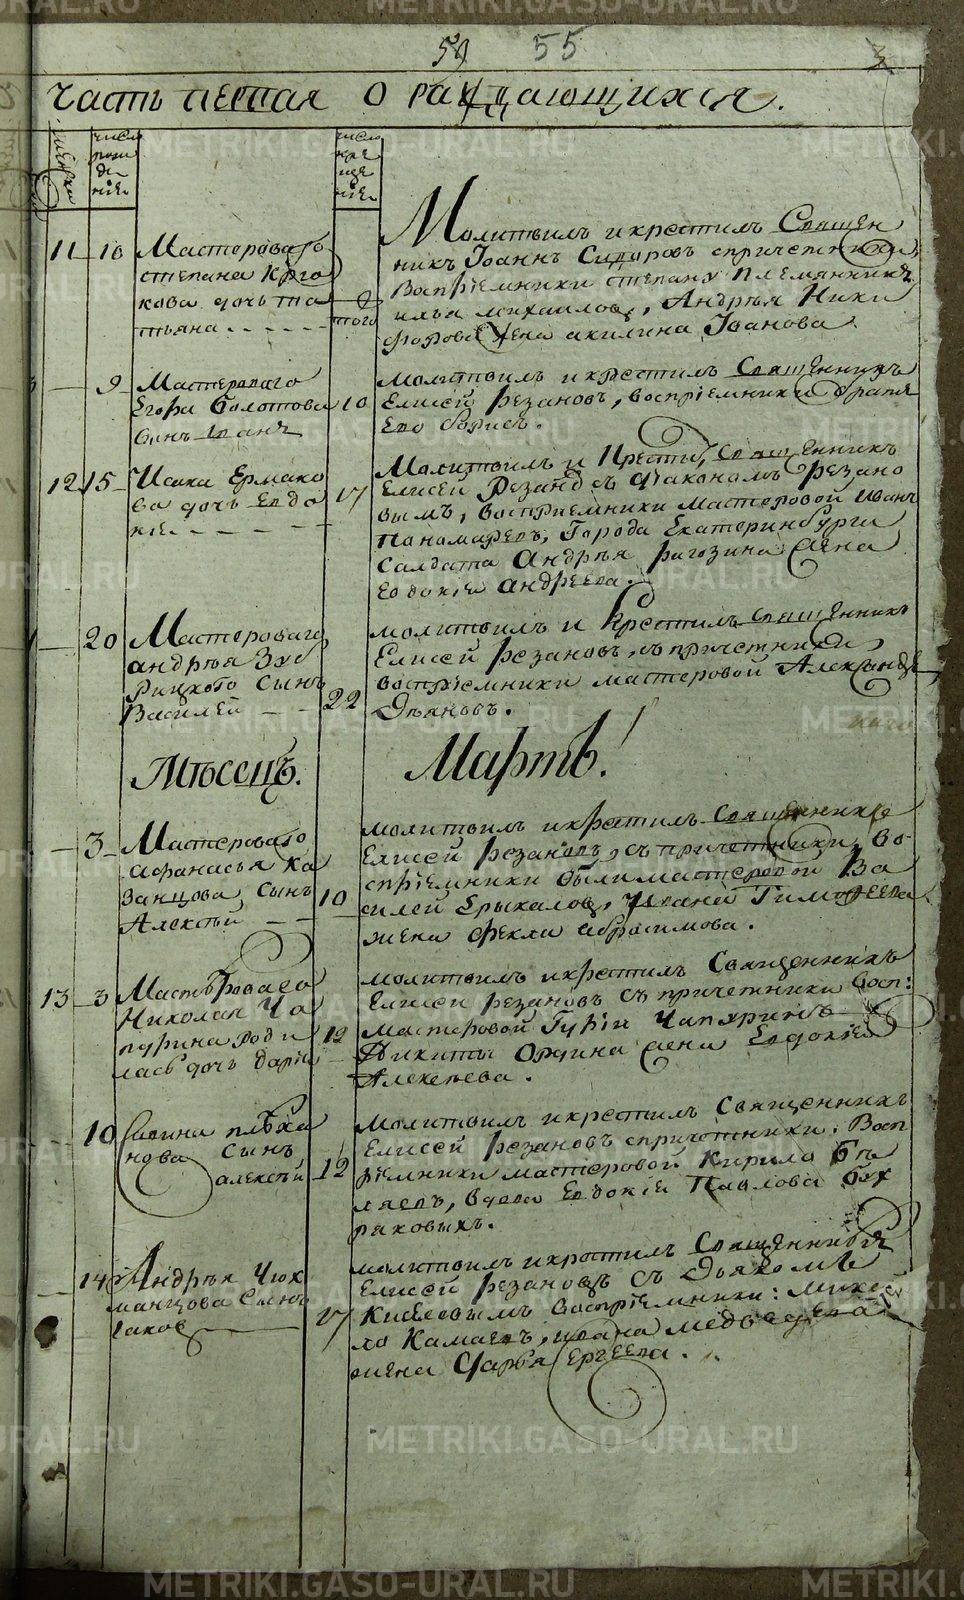 59 55
3
Часть первая О раждающихся.
число рожденiе
число крещенiе
11 10 Мастероваго
степана
кова дочь та
тьяна
того
Молитвилъ икрестилъ Священ
никъ Iоаннъ Сидоровъ спричетники,
Воспрiемники степану племянникъ
илья михаиловъ, Андрѣя Ники
форова жена акилина Iванова.
9 Мастероваго
Егора болотова
сынъ иванъ
10
молитвилъ и крестилъ Священникъ
Елисей Резановъ, воспрiемники братъ
Ево борисъ.
12 15 Исака Ермако
ва дочь Евдо
кiе
17
Молитвилъ и Крести, Священникъ
Елисей Резановъ съ дiакономъ Резано
вымъ, воспрiемники мастеровой иванъ
Пономаревъ, Города Екатеринбурга
Салдата Андрѣя рагозина жена
Евдокiе андреева.
20 Мастероваго
андрѣя Зуб
рицкого Сынъ
Василей
22
молитвилъ и Крестилъ Священникъ
Елисей резановъ, съ причетники,
воспрiемники мастеровой Александръ
Деяновъ.
Мѣсецъ. Мартъ!
3 Мастероваго
афанасья Ка
занцова, Сынъ
Алексѣй
10
молитвилъ икрестилъ Священникъ
Елисей резановъ, съ причетники, Во
спрiемники были мастеровой Ва
силей Ерыкаловъ, Ивана Тимофеева
жена Фекла абросимова.
13 3 Мастероваго
Николая Ча
пурина роди
лась дочь дарiя
12
молитвилъ икрестилъ Священникъ
Елисей резановъ съ причетники восп:
мастеровой Гурiй Чапуринъ
Никиты жена Евдокiя
Алексѣева.
10 Савина плѣха
нова Сынъ
алексѣй
12
Молитвилъ икрестилъ Священникъ
Елисей резановъ спричотники. Восп
рiемники мастеровой Кирило бѣ
ляевъ, вдова Евдокiе Павлова бух
ряковыхъ.
14 Андрѣя Чюк
манцова Сынъ
iаковъ
17
молитвилъ икрстилъ Священникъ
Елисей резановъ съ Дьякомъ
Кисѣевымъ Воспрiемники: михай
ло Камаевъ, ивана медведева
жена Дарья Сергеева.
METRIKI.GASO-URAL.RU